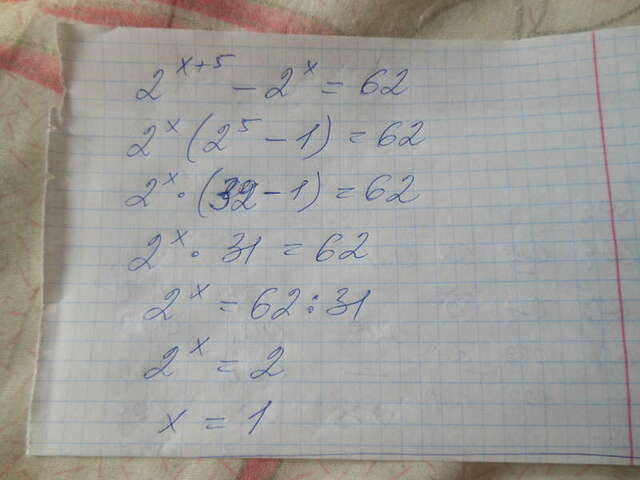 2^{x+5} - 2^x = 62
2^x (2^5 - 1) = 62
2^x · (32 - 1) = 62
2^x · 31 = 62
2^x = 62 : 31
2^x = 2
x = 1